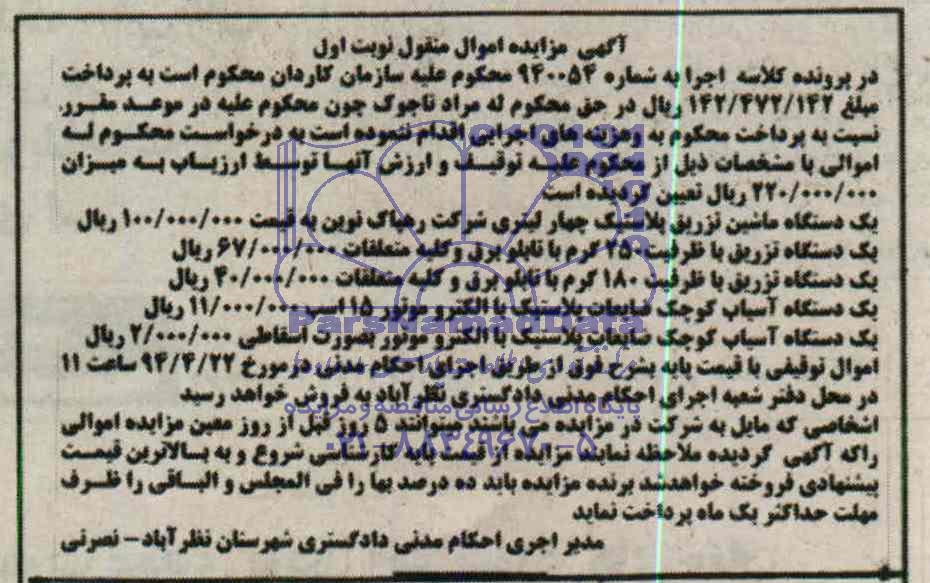 آگهی مزایده اموال منقول نوبت اول
در پرونده کلاسه اجرا به شماره ۹۴۰۰۵۴ محکوم علیه سازمان کاردان محکوم است به پرداخت
مبلغ ۱۴۲/۴۷۲/۱۴۲ ریال در حق محکوم له مراد تاجوک چون محکوم علیه در موعد مقرر
نسبت به پرداخت محکوم به وهزینه های اجرایی اقدام ننموده است به درخواست محکوم له
اموالی با مشخصات ذیل از محکوم علیه توقیف و ارزش آنها توسط ارزیاب به میزان
۲۲۰/۰۰۰/۰۰۰ ریال تعیین گردیده است
یک دستگاه ماشین تزریق پلاستیک چهار لیتری شرکت رهپاک نوین به قیمت ۱۰۰/۰۰۰/۰۰۰ ریال
یک دستگاه تزریق با ظرفیت ۲۵۰ گرم با تابلو برق و کلیه متعلقات ۶۷/۰۰۰/۰۰۰ ریال
یک دستگاه تزریق با ظرفیت ۱۸۰ گرم با تابلو برق و کلیه متعلقات ۴۰/۰۰۰/۰۰۰ ریال
یک دستگاه آسیاب کوچک ضایعات پلاستیک با الکترو موتور ۱۵ اسب ۱۱/۰۰۰/۰۰۰ ریال
ParsNamadData
یک دستگاه آسیاب کوچک ضایعات پلاستیک با الکترو موتور بصورت اسقاطی ۲/۰۰۰/۰۰۰ ریال
اموال توقیفی با قیمت پایه بشرح فوق از طریق اجرای احکام مدنی در مورخ ۹۴/۴/۲۲ ساعت ۱۱
در محل دفتر شعبه اجرای احکام مدنی دادگستری نظرآباد به فروش خواهد رسید
پایگاه اطلاع رسانی مناقصه و مزایده
اشخاصی که مایل به شرکت در مزایده می باشند میتوانند ۵ روز قبل از روز معین مزایده اموالی
۰۲۱-۸۸۳۴۹۶۷۰-۵
راکه آگهی گردیده ملاحظه نمایند مزایده از قیمت پایه کارشناسی شروع و به بالاترین قیمت
پیشنهادی فروخته خواهدشد برنده مزایده باید ده درصد بها را فی المجلس و الباقی را ظرف
مهلت حداکثر یک ماه پرداخت نماید
مدیر اجری احکام مدنی دادگستری شهرستان نظرآباد- نصرتی